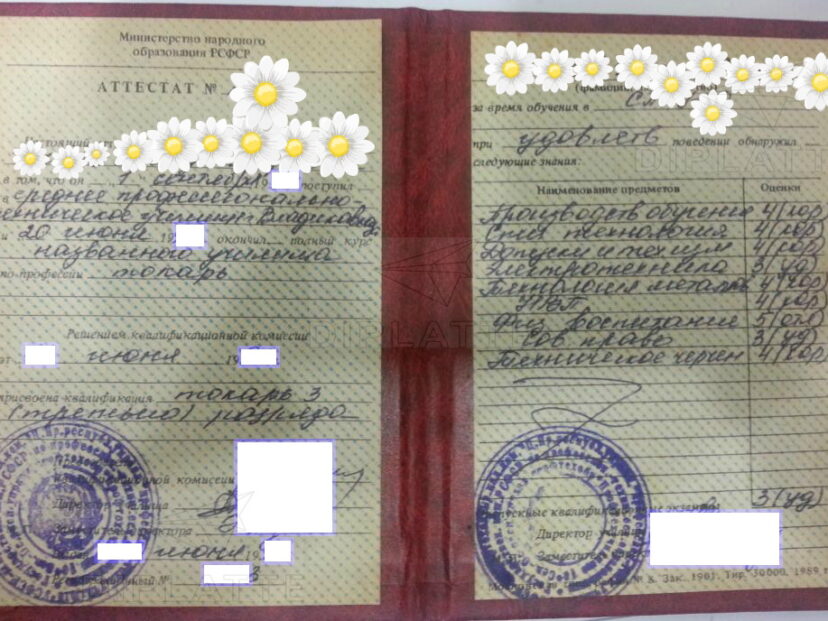 Министерство народного
образования РСФСР
АТТЕСТАТ №
в том, что он „1" сентября 19 поступил
в среднее профессионально
техническое училище г. Владикавказ
и 20 июня 19 окончил полный курс
названного училища
по профессии токарь
Решением квалификационной комиссии
от июня 19
присвоена квалификация токарь 3
(третьего) разряда
квалификационной комиссии
Директор училища
Заместитель директора
июня 19
Регистрационный № 3
за время обучения в
при удовлетв поведении обнаружил
следующие знания:
Наименование предметов Оценки
Производств обучение 4/хор
Спец технология 4/хор
Допуски и тех изм 4/хор
Электротехника 3/уд
Технология металла 4/хор
4/хор
Физ воспитание 5/отл
Сов право 3/уд
Техническое черчен 4/хор
Выпускные квалификационные экзамены 3/уд)
Директор училища
Заместитель
Московская типография № 8. Зак. 1901. Тир. 30000. 1989 г.
DIPLATTE